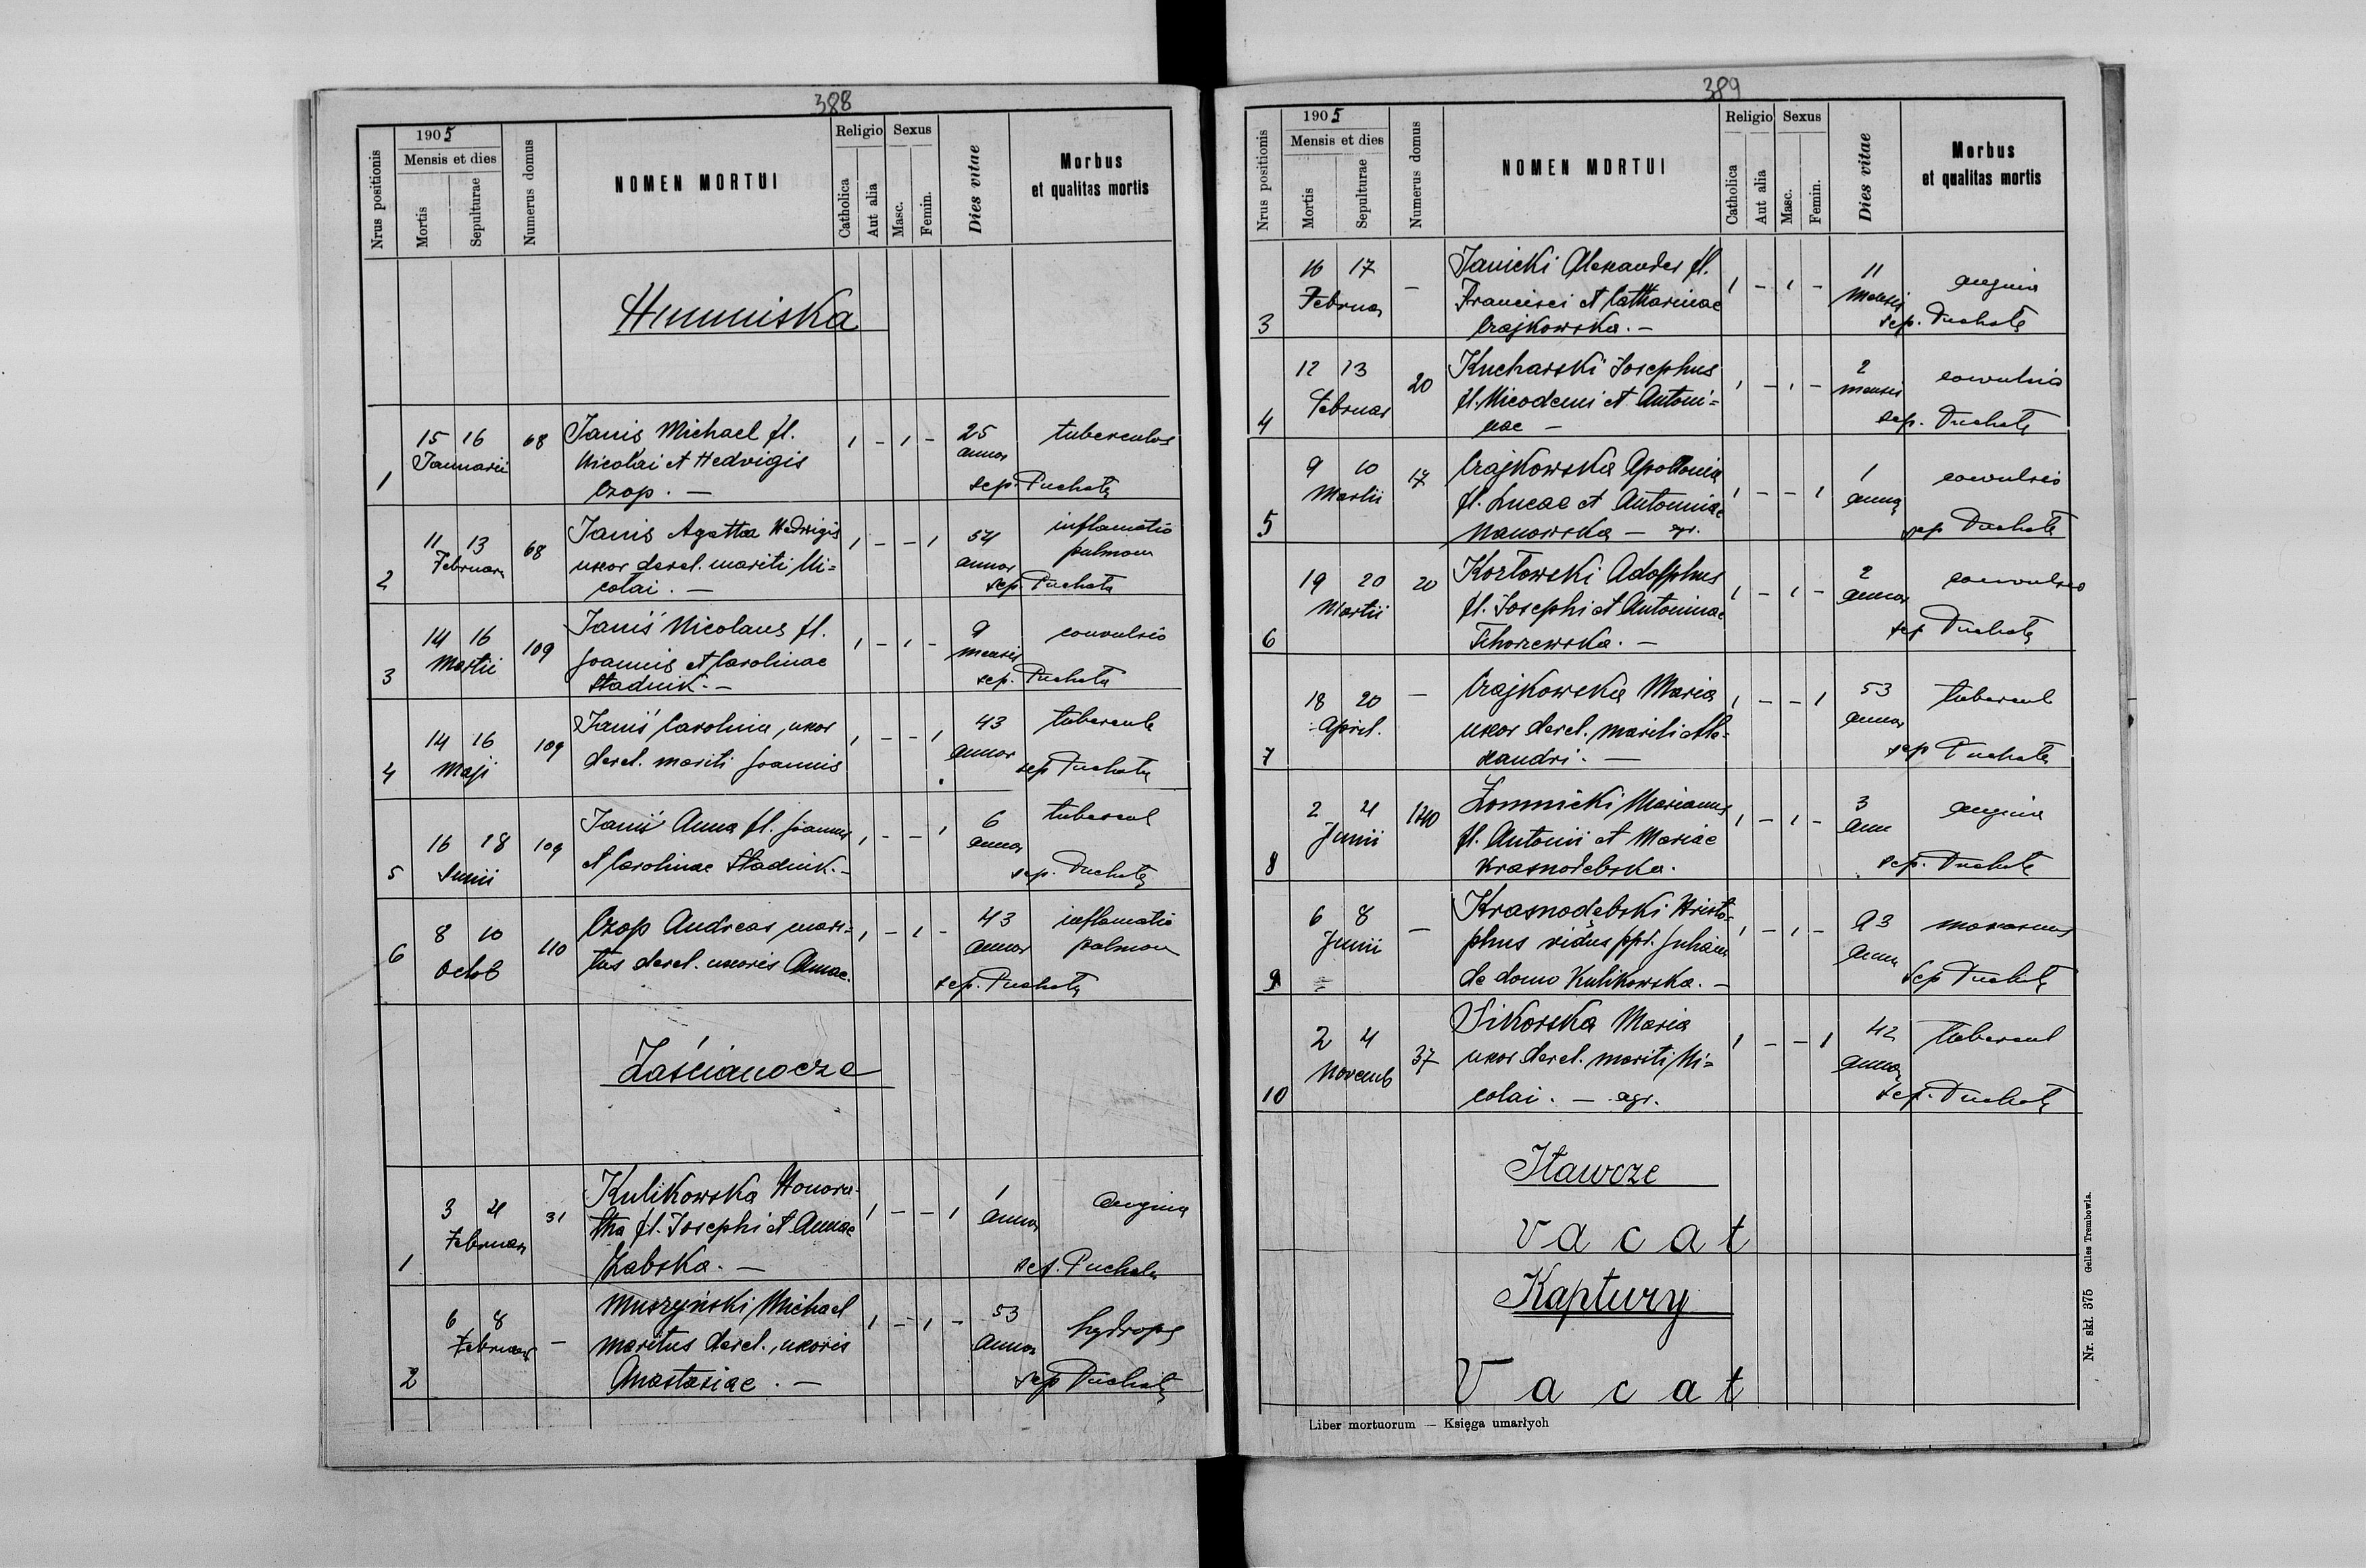 388
1905
Nrus positionis
Mensis et dies
Mortis
Sepulturae
Numerus domus
NOMEN MORTUI
Religio
Catholica
Aut alia
Sexus
Masc.
Femin.
Dies vitae
Morbus
et qualitas mortis
Humniska
1 15 16 Januarii 68
Janiś Michael fl.
Nicolai et Hedvigis
Czop. —
1 - 1 - 25 annor tuberculos
sep. Puchała
2 11 13 Februar 68
Janis Agatha Hedvigis
uxor derel. mariti Ni=
colai. —
1 - - 1 54 annor inflamatio pulmon
sep. Puchała
3 14 16 Martii 109
Janiś Nicolaus fl.
Joannis et Carolinae
Stadnik. —
1 - 1 - 9 mensis convulsio
sep. Puchała
4 14 16 Maji 109
Janiś Carolina, uxor
derel. mariti Joannis
1 - - 1 43 annor tubercul
sep Puchała
5 16 18 Junii 109
Janiś Anna fl. Joannis
et Carolinae Stadnik. -
1 - - 1 6 annor tubercul
sep. Puchała
6 8 10 Octob 110
Czop Andreas mari=
tus derel. uxoris Annae.
1 - 1 - 43 annor inflamatio pulmon
sep. Puchała
Zaścianocze
1 3 4 Februar 31
Kulikowska Honora-
tha fl. Josephi et Annae
Żabska. —
1 - - 1 1 annor angina
sep. Puchała
2 6 8 Februar —
Muszyński Michael
maritus derel., uxoris
Anastasiae. —
1 - 1 - 53 annor hydrops
sep Puchała
389
1905
Nrus positionis
Mensis et dies
Mortis
Sepulturae
Numerus domus
NOMEN MORTUI
Religio
Catholica
Aut alia
Sexus
Masc.
Femin.
Dies vitae
Morbus
et qualitas mortis
3 16 17 Februar —
Janicki Alexander fl.
Francisci et Catharinae
Czajkowska. —
1 - 1 - 11 mensis angina
sep. Puchała
4 12 13 Februar 20
Kucharski Josephus
fl. Nicodemi et Antoni=
nae —
1 - 1 - 2 mensis convulsio
sep. Puchała
5 9 10 Martii 17
Czajkowska Apollonia
fl. Lucae et Antoninae
Nanowska — agr.
1 - - 1 1 anno convulsio
sep Puchała
6 19 20 Martii 20
Kozłowski Adolphus
fl. Josephi et Antoninae
Tchorzewska. —
1 - 1 - 2 annor convulsio
sep Puchała
7 18 20 April. —
Czajkowska Maria
uxor derel. mariti Ale-
xandri. —
1 - - 1 53 annor tubercul
sep Puchała
8 2 4 Junii 140
Łomnicki Marianus
fl. Antonii et Mariae
Krasnodebska.
1 - 1 - 3 ann angina
sep. Puchała
9 6 8 Junii —
Krasnodębski Kristo-
phus viduus ppt. Juliana
de domo Kulikowska. —
1 - 1 - 93 annor marasmus
Sep Puchała
10 2 4 Novemb 37
Sikorska Maria
uxor derel. mariti Ni=
colai. — agr.
1 - - 1 42 annor tubercul
sep. Puchała
Iławcze
Vacat
Kaptury
Vacat
Liber mortuorum — Księga umarłych
Nr. skł. 375 Gelles Trembowla.